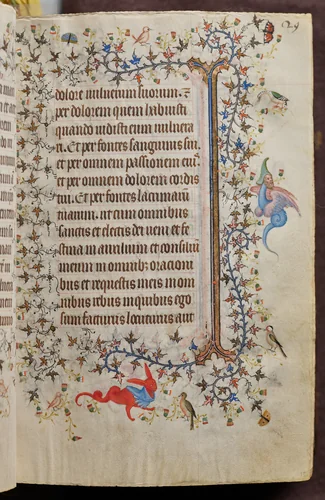 29
dolore vulnerum suorum. Et
per dolorem quem habuisti
quando vidisti eum vulnera
ri. Et per fontes sanguinis sui
et per omnem passionem eius
et per omnem dolorem cordis
tui. Et per fontes lacrimarum
tuarum. ut cum omnibus
sanctis et electis dei veni et fe
stina in auxilium et consilium
meum in omnibus oracioni
bus et requestis meis in om
nibus rebus in quibus ego
sum facturus locuturus aut